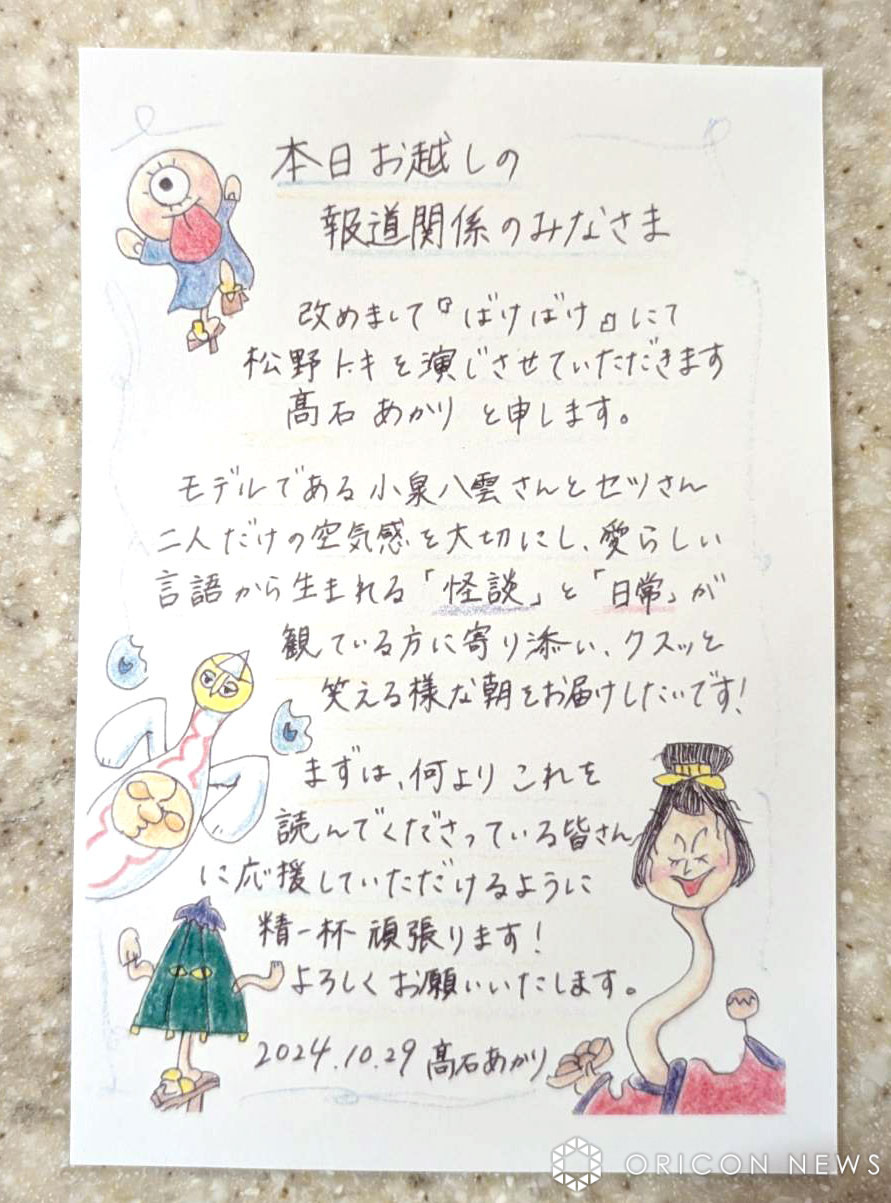 本日お越しの
報道関係のみなさま
改めまして『ばけばけ』にて
松野トキを演じさせていただきます
髙石あかりと申します。
モデルである小泉八雲さんとセツさん
二人だけの空気感を大切にし、愛らしい
言語から生まれる「怪談」と「日常」が
観ている方に寄り添い、クスッと
笑える様な朝をお届けしたいです!
まずは、何よりこれを
読んでくださっている皆さん
に応援していただけるように
精一杯頑張ります!
よろしくお願いいたします。
2024.10.29 髙石あかり
ORICON NEWS